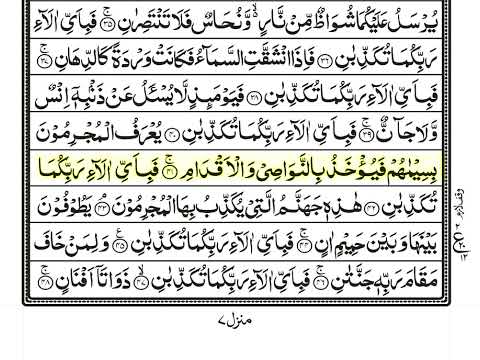 يُرۡسَلُ عَلَيۡكُمَا شُوَاظٌ مِّنۡ نَّارٍ ۙ وَّنُحَاسٌ فَلَا تَنۡتَصِرٰنِ ۚ‏ ﴿۳۵﴾ فَبِاَىِّ اٰلَاۤءِ
رَبِّكُمَا تُكَذِّبٰنِ ﴿۳۶﴾ فَاِذَا انْشَقَّتِ السَّمَآءُ فَكَانَتۡ وَرۡدَةً كَالدِّهَانِ​ۚ ﴿۳۷﴾
فَبِاَىِّ اٰلَاۤءِ رَبِّكُمَا تُكَذِّبٰنِ ﴿۳۸﴾ فَيَوۡمَـئِذٍ لَّا يُسۡـئَلُ عَنۡ ذَنۡۢبِهٖۤ اِنۡسٌ
وَّلَا جَآنٌّ​ۚ ﴿۳۹﴾ فَبِاَىِّ اٰلَاۤءِ رَبِّكُمَا تُكَذِّبٰنِ ﴿۴۰﴾ يُعۡرَفُ الۡمُجۡرِمُوۡنَ
بِسِيۡمٰهُمۡ فَيُؤۡخَذُ بِالنَّوَاصِىۡ وَ الۡاَقۡدَامِ​ۚ ﴿۴۱﴾ فَبِاَىِّ اٰلَاۤءِ رَبِّكُمَا
تُكَذِّبٰنِ ﴿۴۲﴾ هٰذِهٖ جَهَنَّمُ الَّتِىۡ يُكَذِّبُ بِهَا الۡمُجۡرِمُوۡنَ​ۘ ﴿۴۳﴾ يَطُوۡفُوۡنَ
بَيۡنَهَا وَبَيۡنَ حَمِيۡمٍ اٰنٍ​ۚ ﴿۴۴﴾ فَبِاَىِّ اٰلَاۤءِ رَبِّكُمَا تُكَذِّبٰنِ ﴿۴۵﴾ وَلِمَنۡ خَافَ
مَقَامَ رَبِّهٖ جَنَّتٰنِ​ۚ ﴿۴۶﴾ فَبِاَىِّ اٰلَاۤءِ رَبِّكُمَا تُكَذِّبٰنِۙ ﴿۴۷﴾ ذَوَاتَاۤ اَفۡنَانٍ​ۚ ﴿۴۸﴾
منزل ۷